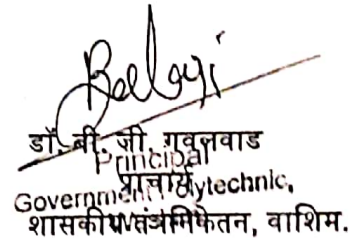 डॉ. बी. जी. गवलवाड
Principal
प्राचार्य
Government Polytechnic,
शासकीय तंत्रनिकेतन, वाशिम.